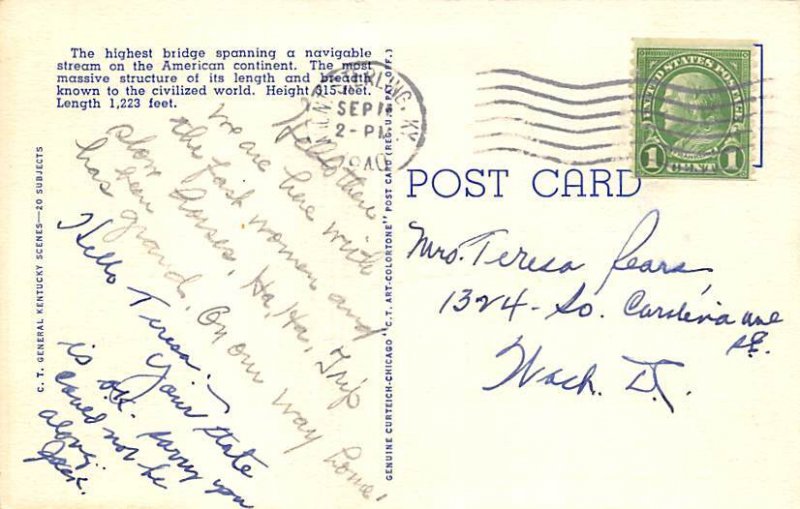 The highest bridge spanning a navigable
stream on the American continent. The most
massive structure of its length and breadth
known to the civilized world. Height 315 feet.
Length 1,223 feet.
C. T. GENERAL KENTUCKY SCENES—20 SUBJECTS
Hello there
we are here with
the fast women and
slow horses, Ha, Ha, Trip
has been grand. On our way home.
Hello Teresa:—
Your state
is o.k. sorry you
could not be
along.
Jack.
GENUINE CURTEICH-CHICAGO "C. T. ART-COLORTONE" POST CARD (REG. U. S. PAT. OFF.)
STERLING, KY.
SEP 1
2-P
1940
UNITED STATES POSTAGE
1 CENT 1
POST CARD
Mrs. Teresa Pears
1324 - So. Carolina ave
S.E.
Wash. D.C.